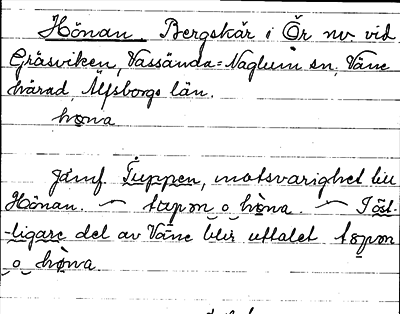 Hönan Bergskär i Ör nv vid
Gräsviken, Vassända-Naglum sn, Väne
härad, Älfsborgs län.
høna
Jämf. Tuppen, motsvarighet till
Hönan. — tupon o høna. — I öst-
-ligare del av Väne blir uttalet
o høna